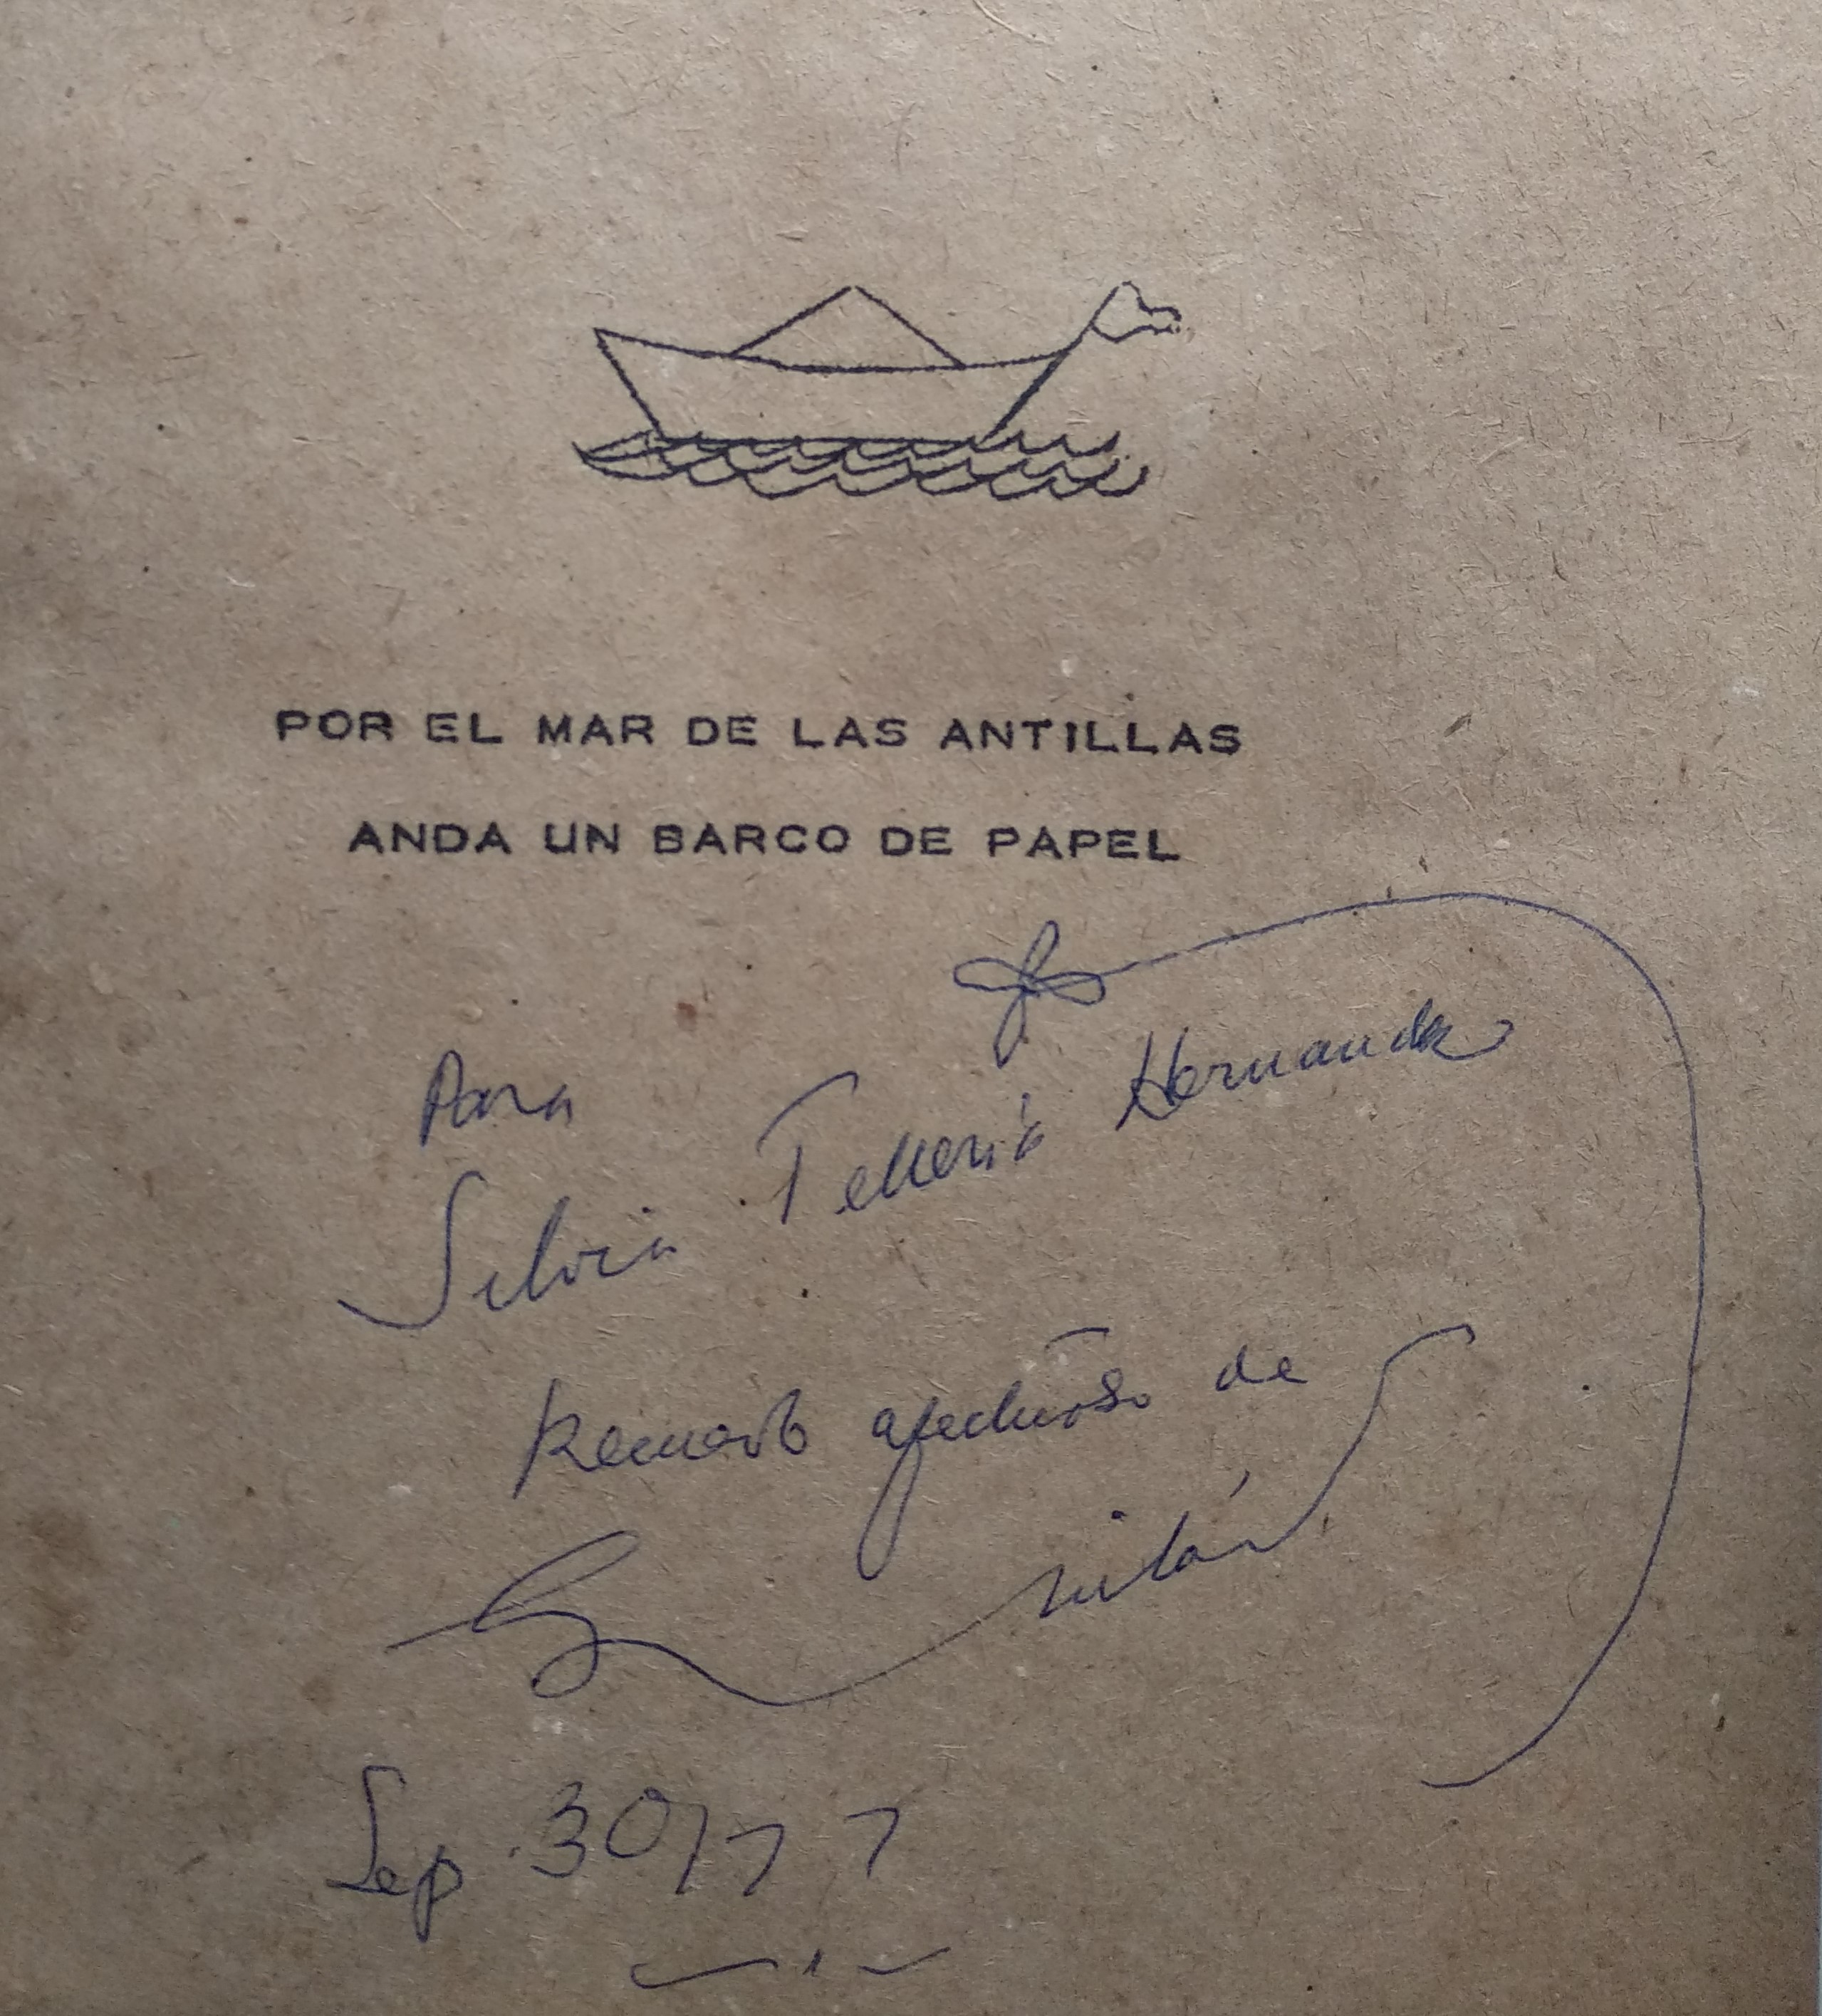 POR EL MAR DE LAS ANTILLAS
ANDA UN BARCO DE PAPEL
Para
Silvia Tellería Hernandez
Recuerdo afectuoso de
Guillén
Sep. 30/77